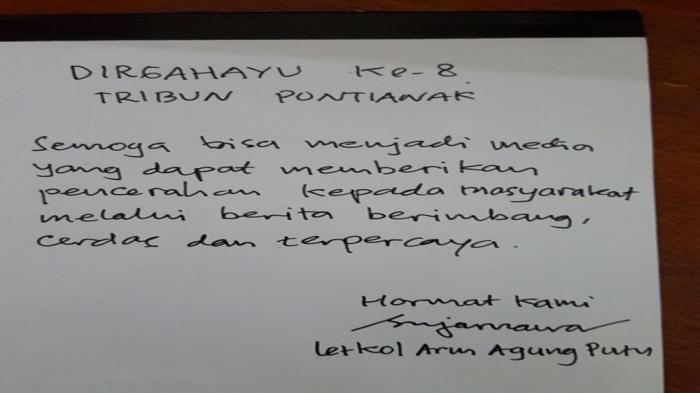 DIRGAHAYU Ke-8.
TRIBUN PONTIANAK
Semoga bisa menjadi media
yang dapat memberikan
pencerahan kepada masyarakat
melalui berita berimbang,
cerdas dan terpercaya.
Hormat Kami
Letkol Arm Agung Putu